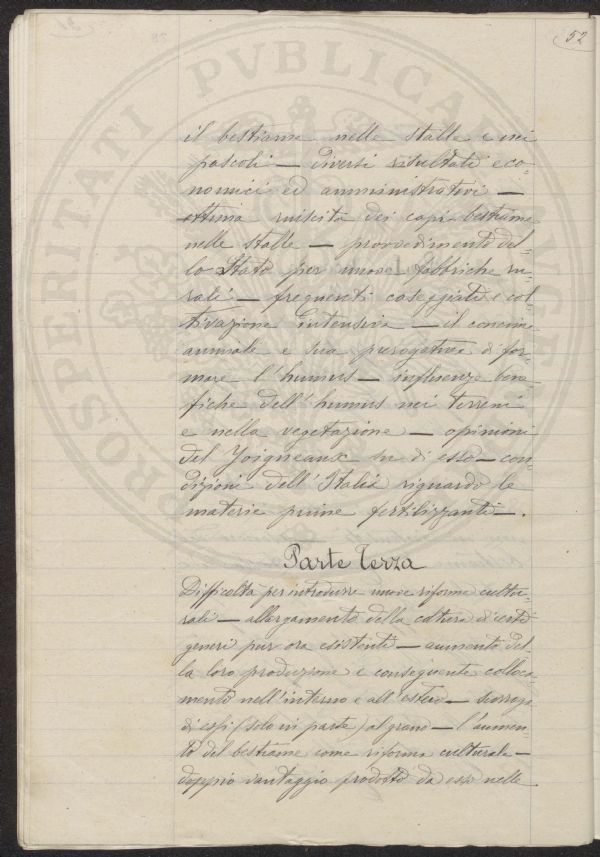 52
PROSPERITATI PVBLICAE AVGENDAE
il bestiame nelle stalle e nei
pascoli — diversi risultati eco-
nomici ed amministrativi —
ottima riuscita dei capi bestiame
nelle stalle — provvedimento del-
lo Stato per nuove fabbriche ru-
rali — frequenti caseggiati e col
tivazione intensiva — il concime
animale e sua prerogativa di for-
mare l'humus — influenze bene-
fiche dell'humus nei terreni
e nella vegetazione — opinioni
del Joigneaux su di esso — con-
dizioni dell'Italia riguardo le
materie prime fertilizzanti —.
Parte Terza
Difficoltà per introdurre nuove riforme cultu-
rali — allargamento della coltura di certi
generi pur ora esistenti — aumento del-
la loro produzione e conseguente colloca-
mento nell'interno e all'estero — surroga
di essi (solo in parte) al grano — l'aumen-
to del bestiame come riforma culturale —
doppio vantaggio prodotto da esso nelle